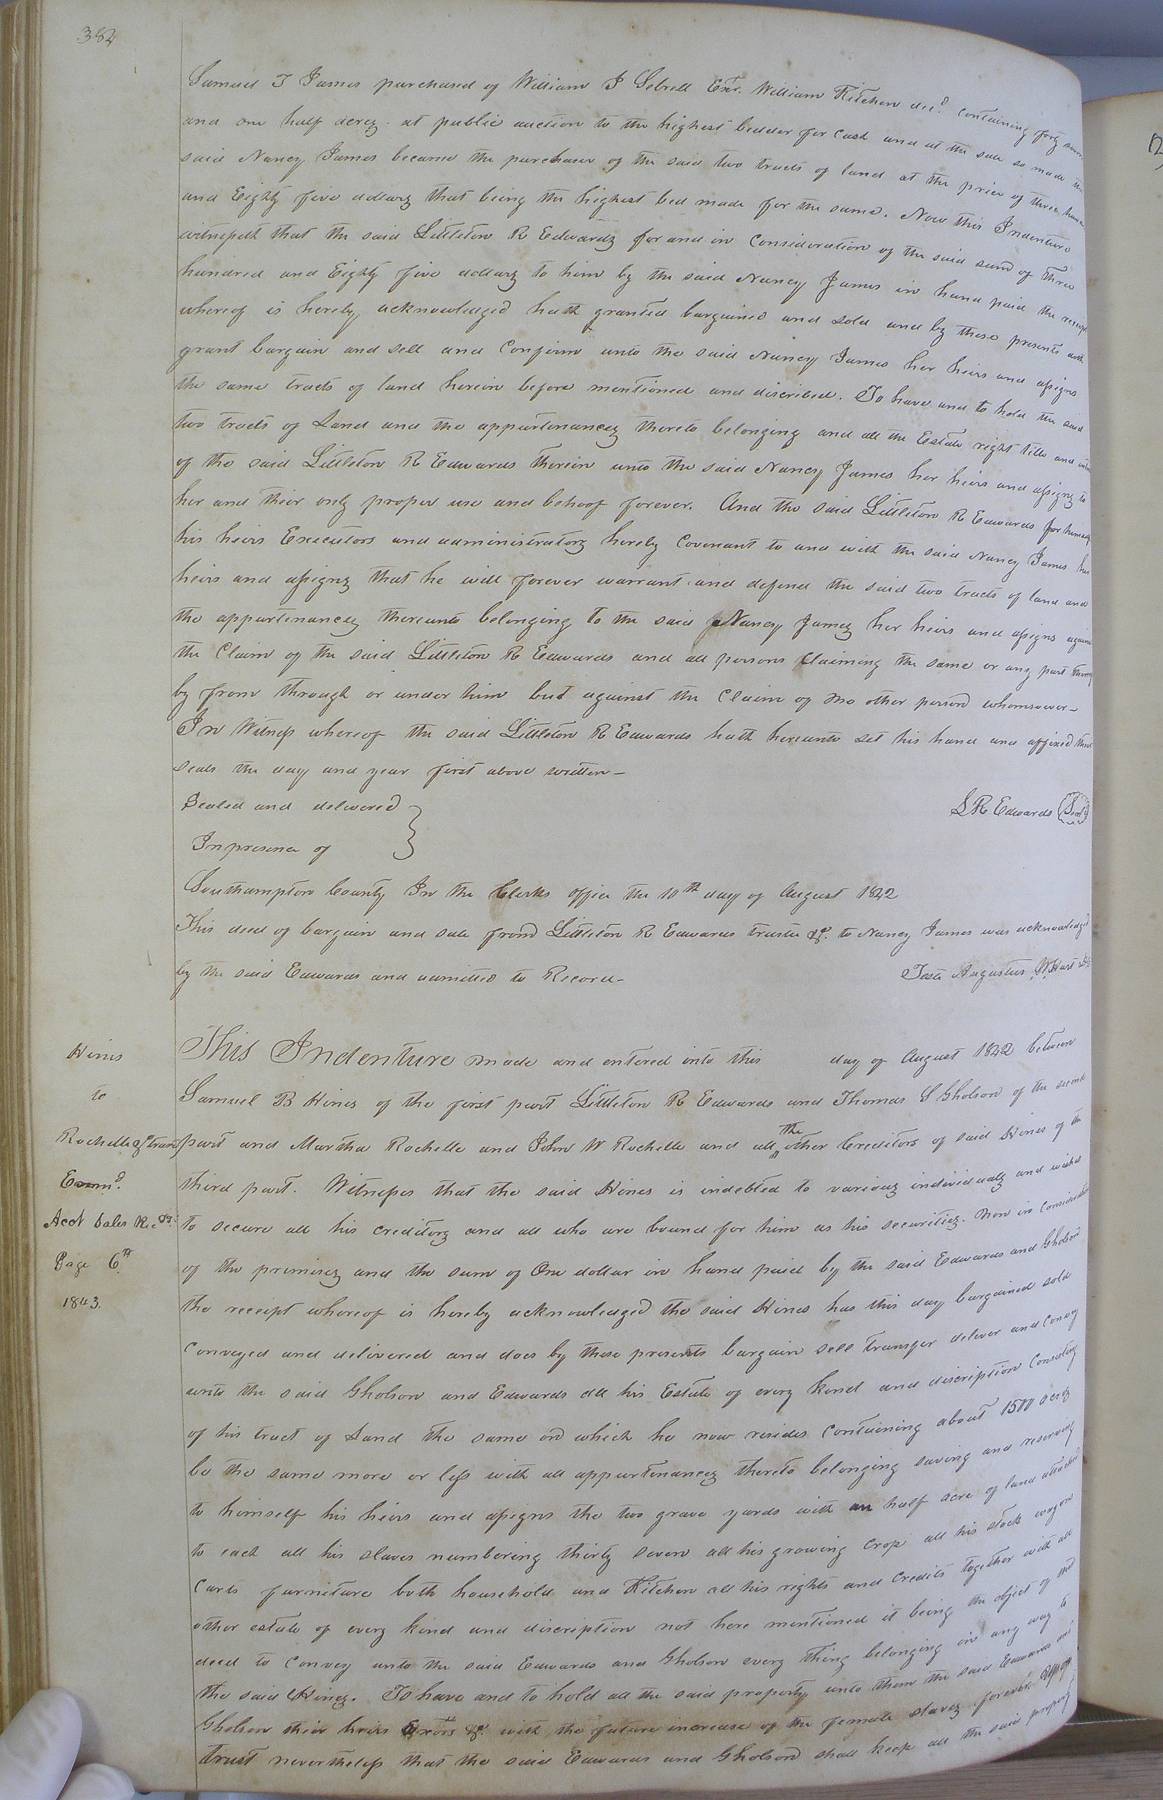 382
Samuel T James purchased of William J Sebrell Exr. William Kitchen decd. containing forty seven
and one half acres at public auction to the highest bidder for cash and at the sale so made the
said Nancy James became the purchaser of the said two tracts of land at the price of three hund
and Eighty five dollars that being the highest bid made for the same. Now this Indenture
witnesseth that the said Littleton R Edwards for and in Consideration of the said sum of three
hundred and Eighty five dollars to him by the said Nancy James in hand paid the receipt
whereof is hereby acknowledged hath granted bargained and sold and by these presents doth
grant bargain and sell and Confirm unto the said Nancy James her heirs and assigns
the same tracts of land herein before mentioned and discribed. To have and to hold the said
two tracts of Land and the appurtenances thereto belonging and all the Estate right title and
of the said Littleton R Edwards therein unto the said Nancy James her heirs and assigns to
her and their only proper use and behoof forever. And the said Littleton R Edwards for himself
his heirs Executors and administrators hereby Covenant to and with the said Nancy James her
heirs and assigns that he will forever warrant and defend the said two tracts of land and
the appurtenances thereunto belonging to the said Nancy James her heirs and assigns against
the Claim of the said Littleton R Edwards and all persons Claiming the same or any part thereof
by from through or under him but against the Claim of no other person whomsoever-
In Witness whereof the said Littleton R Edwards hath hereunto set his hand and affixed
seals the day and year first above written-
Sealed and delivered } L R Edwards Seal
In presence of
Southampton County In the Clerks office the 10th day of August 1842
This deed of bargain and sale from Littleton R Edwards trustee &c. to Nancy James was acknowledged
by the said Edwards and admitted to Record- Teste Augustus W Hart
Hines
to
Rochelle &c trans
Exmd.
Acct Sales
Page 6th
1843.
This Indenture made and entered into this day of August 1842 between
Samuel B Hines of the first part Littleton R Edwards and Thomas S Gholson of the second
part and Martha Rochelle and John W Rochelle and all the other Creditors of said Hines of the
third part. Witnesses that the said Hines is indebted to various individuals and wishes
to secure all his creditors and all who are bound for him as his securities. Now in consideration
of the premises and the sum of One dollar in hand paid by the said Edwards and Gholson
the receipt whereof is hereby acknowledged the said Hines has this day bargained sold
Conveyed and delivered and does by these presents bargain sell transfer deliver and Convey
unto the said Gholson and Edwards all his Estate of every kind and discription Consisting
of his tract of Land the same on which he now resides Containing about 1500 acres
be the same more or less with all appurtenances thereto belonging saving and reserving
to himself his heirs and assigns the two grave yards with an half acre of land attached
to each all his slaves numbering thirty seven all his growing Crop all his stock wagon
Carts furniture both household and Kitchen all his rights and Credits together with all
other estate of every kind and discription not here mentioned it being the object of this
deed to Convey unto the said Edwards and Gholson every thing belonging in any way to
the said Hines. To have and to hold all the said property unto them the said Edwards and
Gholson their heirs Exors &c with the future increase of the female slaves forever. Upon
trust nevertheless that the said Edwards and Gholson shall keep all the said property